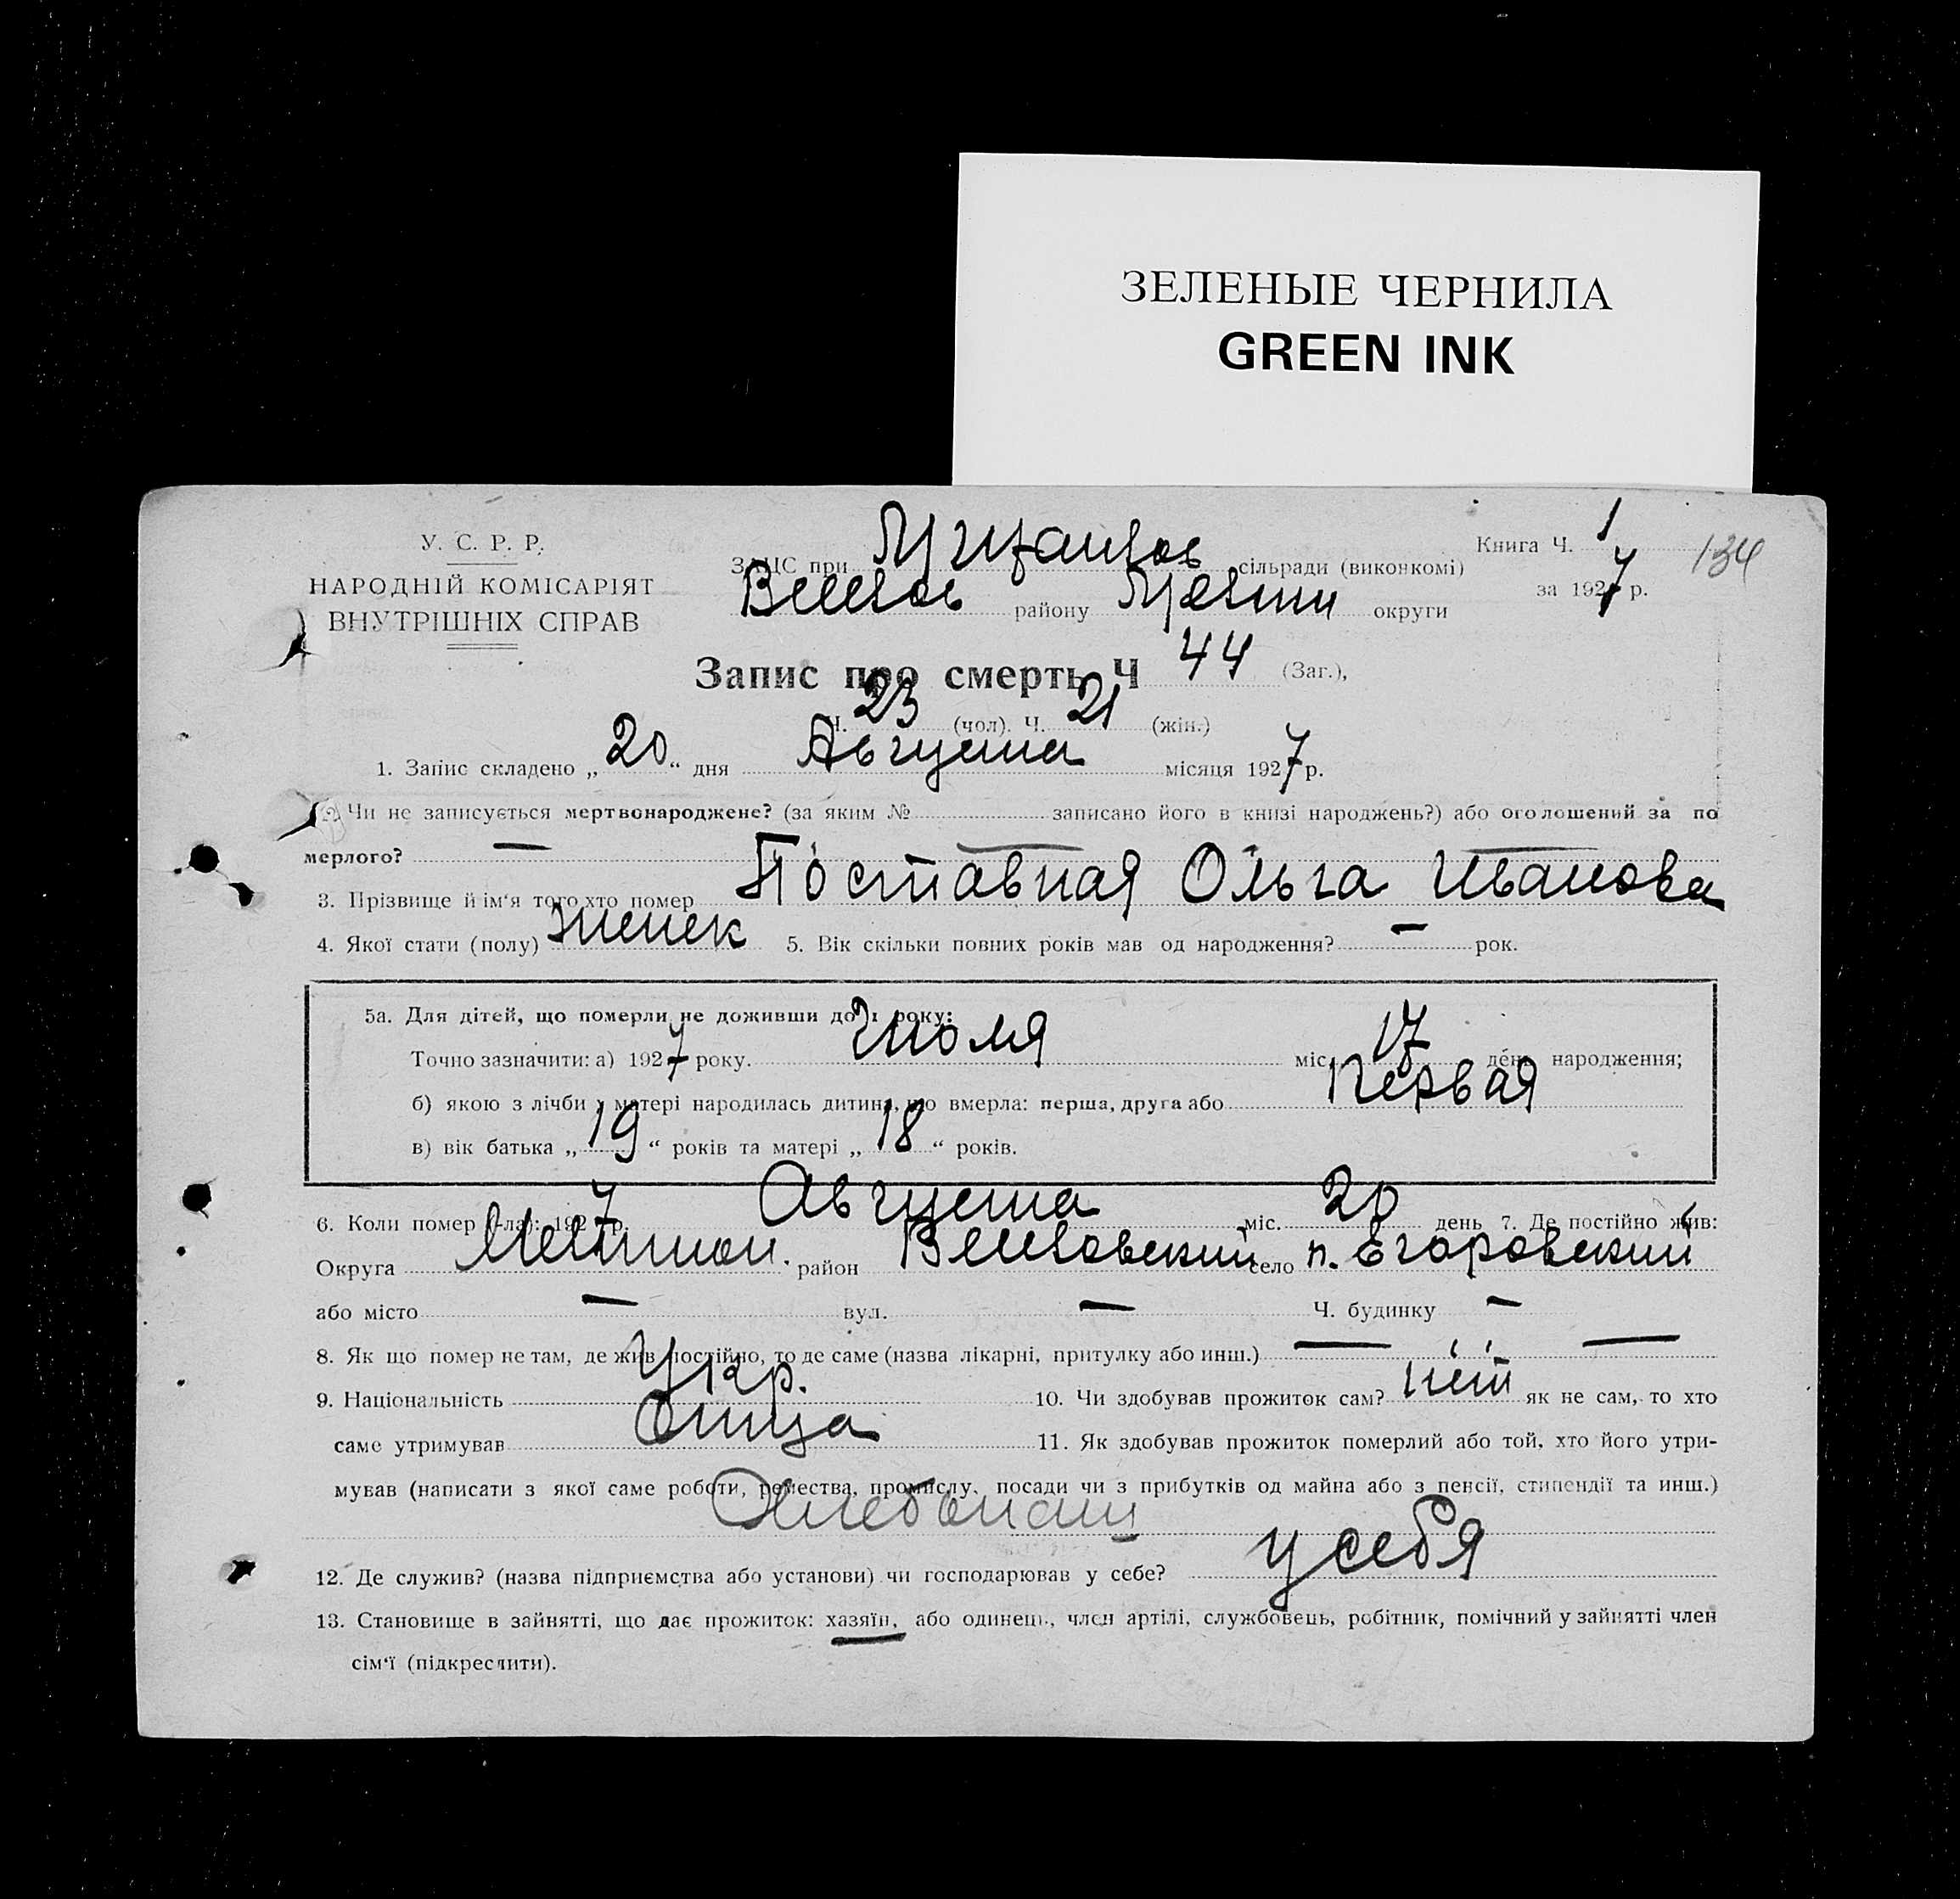 ЗЕЛЕНЫЕ ЧЕРНИЛА
GREEN INK
У. С. Р. Р.
НАРОДНІЙ КОМІСАРІЯТ
ВНУТРІШНІХ СПРАВ
ЗАЦС при сільради (виконкомі)
району округи
Книга Ч. 1
134
за 1927 р.
Запис про смерть Ч 44 (Заг.),
Ч. 23 (чол). Ч. 21 (жін.)
1. Запис складено „20“ дня Августа місяця 1927 р.
2. Чи не записується мертвонароджене? (за яким № записано його в книзі народжень?) або оголошений за по
мерлого? —
3. Прізвище й ім'я того хто помер Поставная Ольга Иванова
4. Якої стати (полу) женск 5. Вік скільки повних років мав од народження? — рок.
5а. Для дітей, що померли не доживши до 1 року:
Точно зазначити: а) 1927 року. Июля міс. 17 день народження;
б) якою з лічби у матері народилась дитина, що вмерла: перша, друга або Первая
в) вік батька „19“ років та матері „18“ років.
6. Коли помер (-ла): 1927 р. Августа міс. 20 день 7. Де постійно жив:
Округа район село п. Егоровский
або місто — вул. — Ч. будинку —
8. Як що помер не там, де жив постійно, то де саме (назва лікарні, притулку або инш.) — —
9. Національність Укр. 10. Чи здобував прожиток сам? нет як не сам, то хто
саме утримував Отца 11. Як здобував прожиток померлий або той, хто його утри-
мував (написати з якої саме роботи, ремества, промислу, посади чи з прибутків од майна або з пенсії, стипендії та инш.)
Хлебопаш
12. Де служив? (назва підприємства або установи) чи господарював у себе? у себя
13. Становище в зайнятті, що дає прожиток: хазяїн, або одинець, член артілі, службовець, робітник, помічний у зайнятті член
сім'ї (підкреслити).